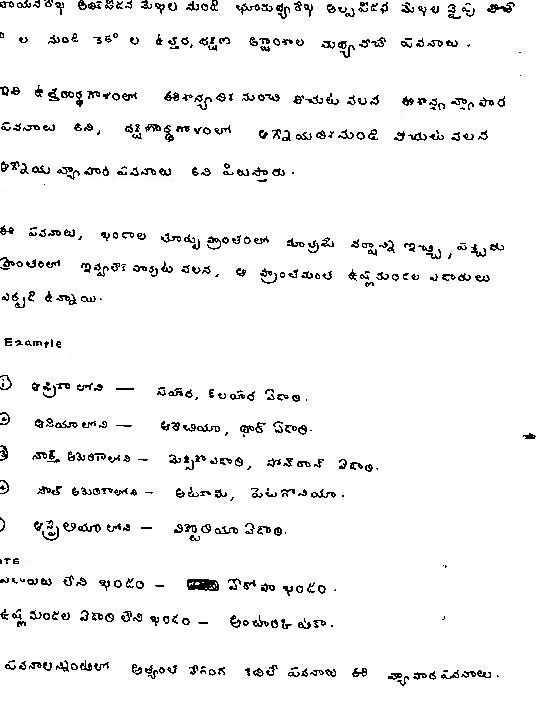 యనరేఖ అధిపీడన మేఖల నుండి భూమధ్యరేఖ అల్పపీడన మేఖల వైపు
ల నుండి 35° ల ఉత్తర, దక్షిణ అక్షాంశాల మధ్య వీచే పవనాలు.
ఇవి ఉత్తరార్థగోళంలో ఈశాన్య దిశ నుండి వీచుట వలన ఈశాన్య వ్యాపార
పవనాలు అని, దక్షిణార్థగోళంలో ఆగ్నేయదిశనుండి వీచుట వలన
ఆగ్నేయ వ్యాపార పవనాలు అని పిలుస్తారు.
ఈ పవనాలు, ఖండాల తూర్పు ప్రాంతంలో మాత్రమే వర్షాన్ని ఇచ్చి, పశ్చిమ
ప్రాంతంలో ఇవ్వలేకపోవుట వలన, ఆ ప్రాంతమంత ఉష్ణమండల ఎడారులు
ఏర్పడి ఉన్నాయి.
Example
① ఆఫ్రికా లోని — సహార, కలహారి ఏడారి.
② ఆసియా లోని — అరేబియా, థార్ ఏడారి.
③ నార్త్ అమెరికాలోని – మెక్సికో ఎడారి, సోనోరాన్ ఏడారి.
④ సౌత్ అమెరికాలోని – అటకామ, పెటగోనియా.
ఆస్ట్రేలియా లోని — విక్టోరియా ఏడారి.
ఎడారులు లేని ఖండం – ఐరోపా ఖండం.
ఉష్ణ మండల ఏడారి లేని ఖండం – అంటార్కిటికా.
పవనాలన్నింటిలో అత్యంత వేగంగ కదిలే పవనాలు ఈ వ్యాపార పవనాలు.